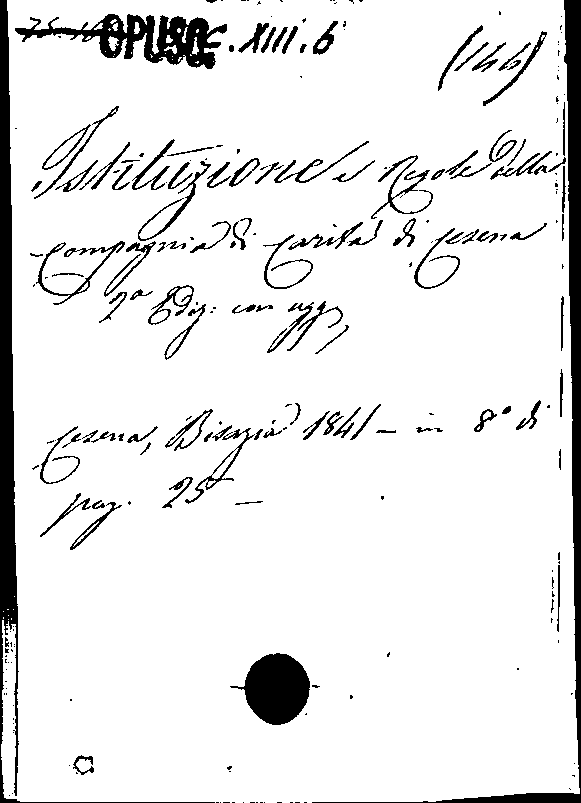 OPUSC. XIII. 6
(146)
Istituzione e Regole della
Compagnia di Carità di Cesena
2ª Ediz: con agg,
Cesena, Bisazia 1841 - in 8° di
pag. 25 -